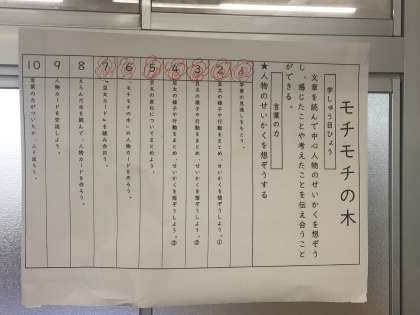 モチモチの木
学しゅう目ひょう
文章を読んで中心人物のせいかくを想ぞう
し、感じたことや考えたことを伝え合うこと
ができる。
言葉の力
★人物のせいかくを想ぞうする
1 学習の見通しをもとう。
2 豆太の様子や行動をまとめ、せいかくを想ぞうしよう。①
3 豆太の様子や行動をまとめ、せいかくを想ぞうしよう。②
4 豆太の様子や行動をまとめ、せいかくを想ぞうしよう。③
5 豆太の変化についてまとめよう。
6 モチモチの木の人物カードを作ろう。
7 「豆太カード」を読み合おう。
8 えらんだ本を読んで、人物カードを作ろう。
9 人物カードを交流しよう。
10 言葉の力がついたか、ふり返ろう。